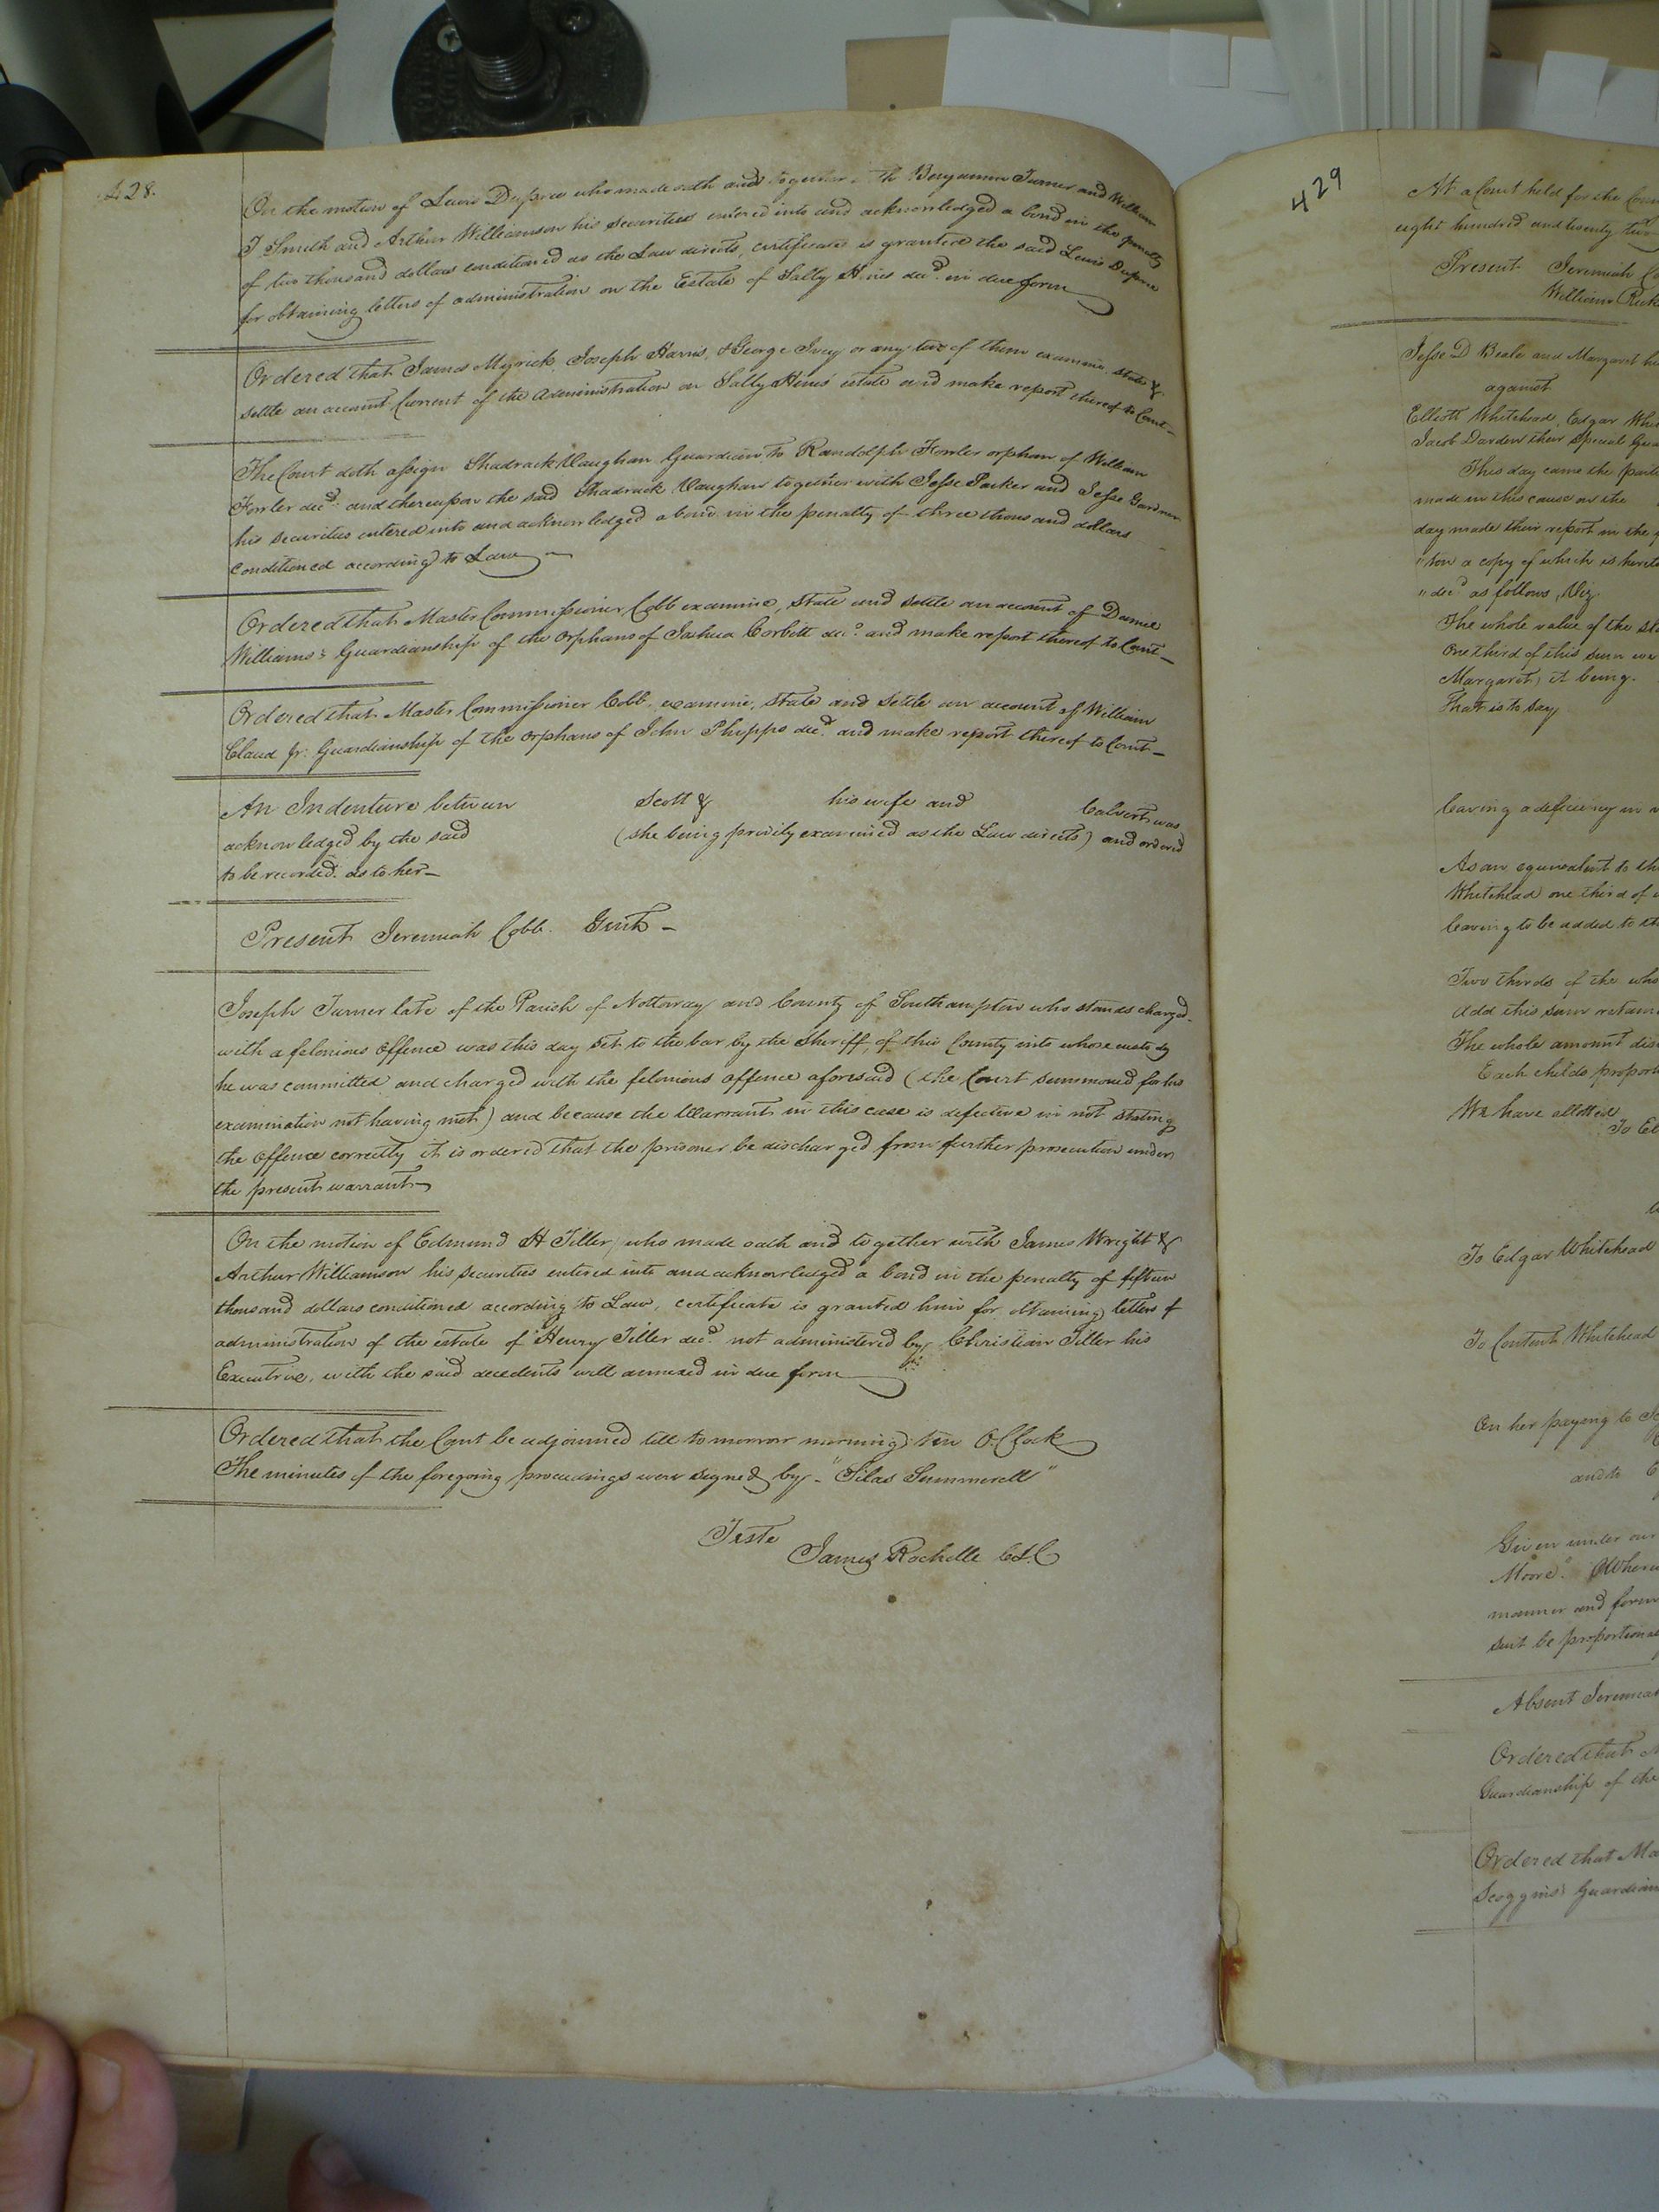 428.
On the motion of Lewis Dupree who made oath and together with Benjamin Turner and William
T Smith and Arthur Williamson his securities entered into and acknowledged a bond in the penalty
of two thousand dollars conditioned as the Law directs, certificate is granted the said Lewis Dupree
for obtaining letters of administration on the Estate of Sally Hines decd. in due form
Ordered that James Myrick, Joseph Harris, & George Ivey or any two of them examine, state &
settle an account Current of the administration on Sally Hines' estate and make report thereof to Court—
The Court doth assign Shadrack Vaughan Guardian to Randolph Fowler orphan of William
Fowler decd. and thereupon the said Shadrack Vaughan together with Jesse Parker and Jesse Gardner
his securities entered into and acknowledged a bond in the penalty of three thousand dollars
conditioned according to Law
Ordered that Master Commissioner Cobb examine, state and settle an account of Daniel
Williams's Guardianship of the Orphans of Joshua Corbitt decd. and make report thereof to Court—
Ordered that Master Commissioner Cobb, examine, state and settle an account of William
Claud Jr. Guardianship of the orphans of John Phipps decd. and make report thereof to Court—
An Indenture between Scott & his wife and Calvert was
acknowledged by the said (she being privily examined as the Law directs) and ordered
to be recorded. as to her—
Present Jeremiah Cobb. Gent—
Joseph Turner late of the Parish of Nottoway and County of Southampton who stands charged
with a felonious offence was this day set to the bar by the Sheriff, of this County into whose custody
he was committed and charged with the felonious offence aforesaid (the Court summoned for his
examination not having met) and because the Warrant in this case is defective in not stating
the offence correctly it is ordered that the prisoner be discharged from further prosecution under
the present warrant—
On the motion of Edmund H Tiller, who made oath and together with James Wright &
Arthur Williamson his securities entered into and acknowledged a bond in the penalty of fifteen
thousand dollars conditioned according to Law, certificate is granted him for obtaining letters of
administration of the estate of Henry Tiller decd. not administered by Christian Tiller his
Executrix, with the said decedents will annexed in due form
Ordered that the Court be adjourned till tomorrow morning ten O.Clock
The minutes of the foregoing proceedings were signed by— "Silas Summerell"
Teste
James Rochelle C.S.C
429
At a Court held for the
eight hundred and twenty
Present Jeremiah
William
Jesse D Beale and Margaret
against
Elliott Whitehead, Edgar
Jacob Darden their special
This day came the
made in this cause on the
day made their report in the
a copy of which is
"decd. as follows, Viz
The whole value of the
One third of this sum
Margaret, it being.
That is to say
leaving a deficiency in
As an equivalent to
Whitehead one third of
leaving to be added to
Two thirds of the
Add this sum
The whole amount
Each childs
We have allotted
To
To Edgar Whitehead
To Content Whitehead
On her paying to
and to
Given under our
Moore".
manner and form
suit be
Absent
Ordered that
Guardianship of the
Ordered that
Scoggins